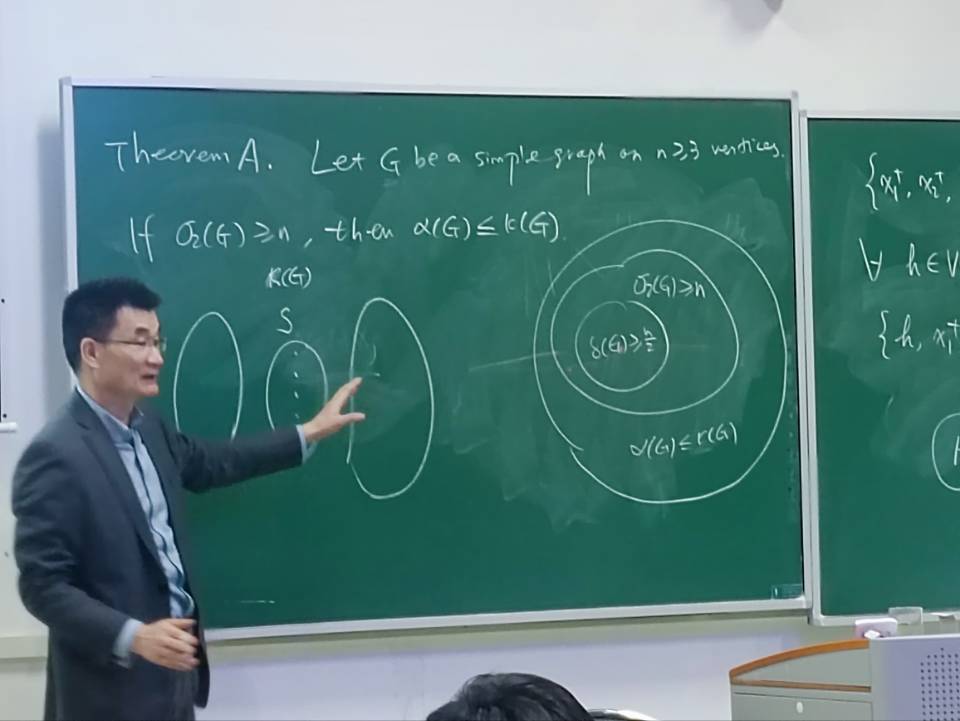 Theorem A. Let G be a simple graph on n≥3 vertices.
If σ₂(G)≥n, then α(G)≤κ(G).
κ(G)
S
σ₂(G)≥n
δ(G)≥n/2
α(G)≤κ(G)
{x₁⁺, x₂⁺,
∀ h∈V
{h, x₁⁺